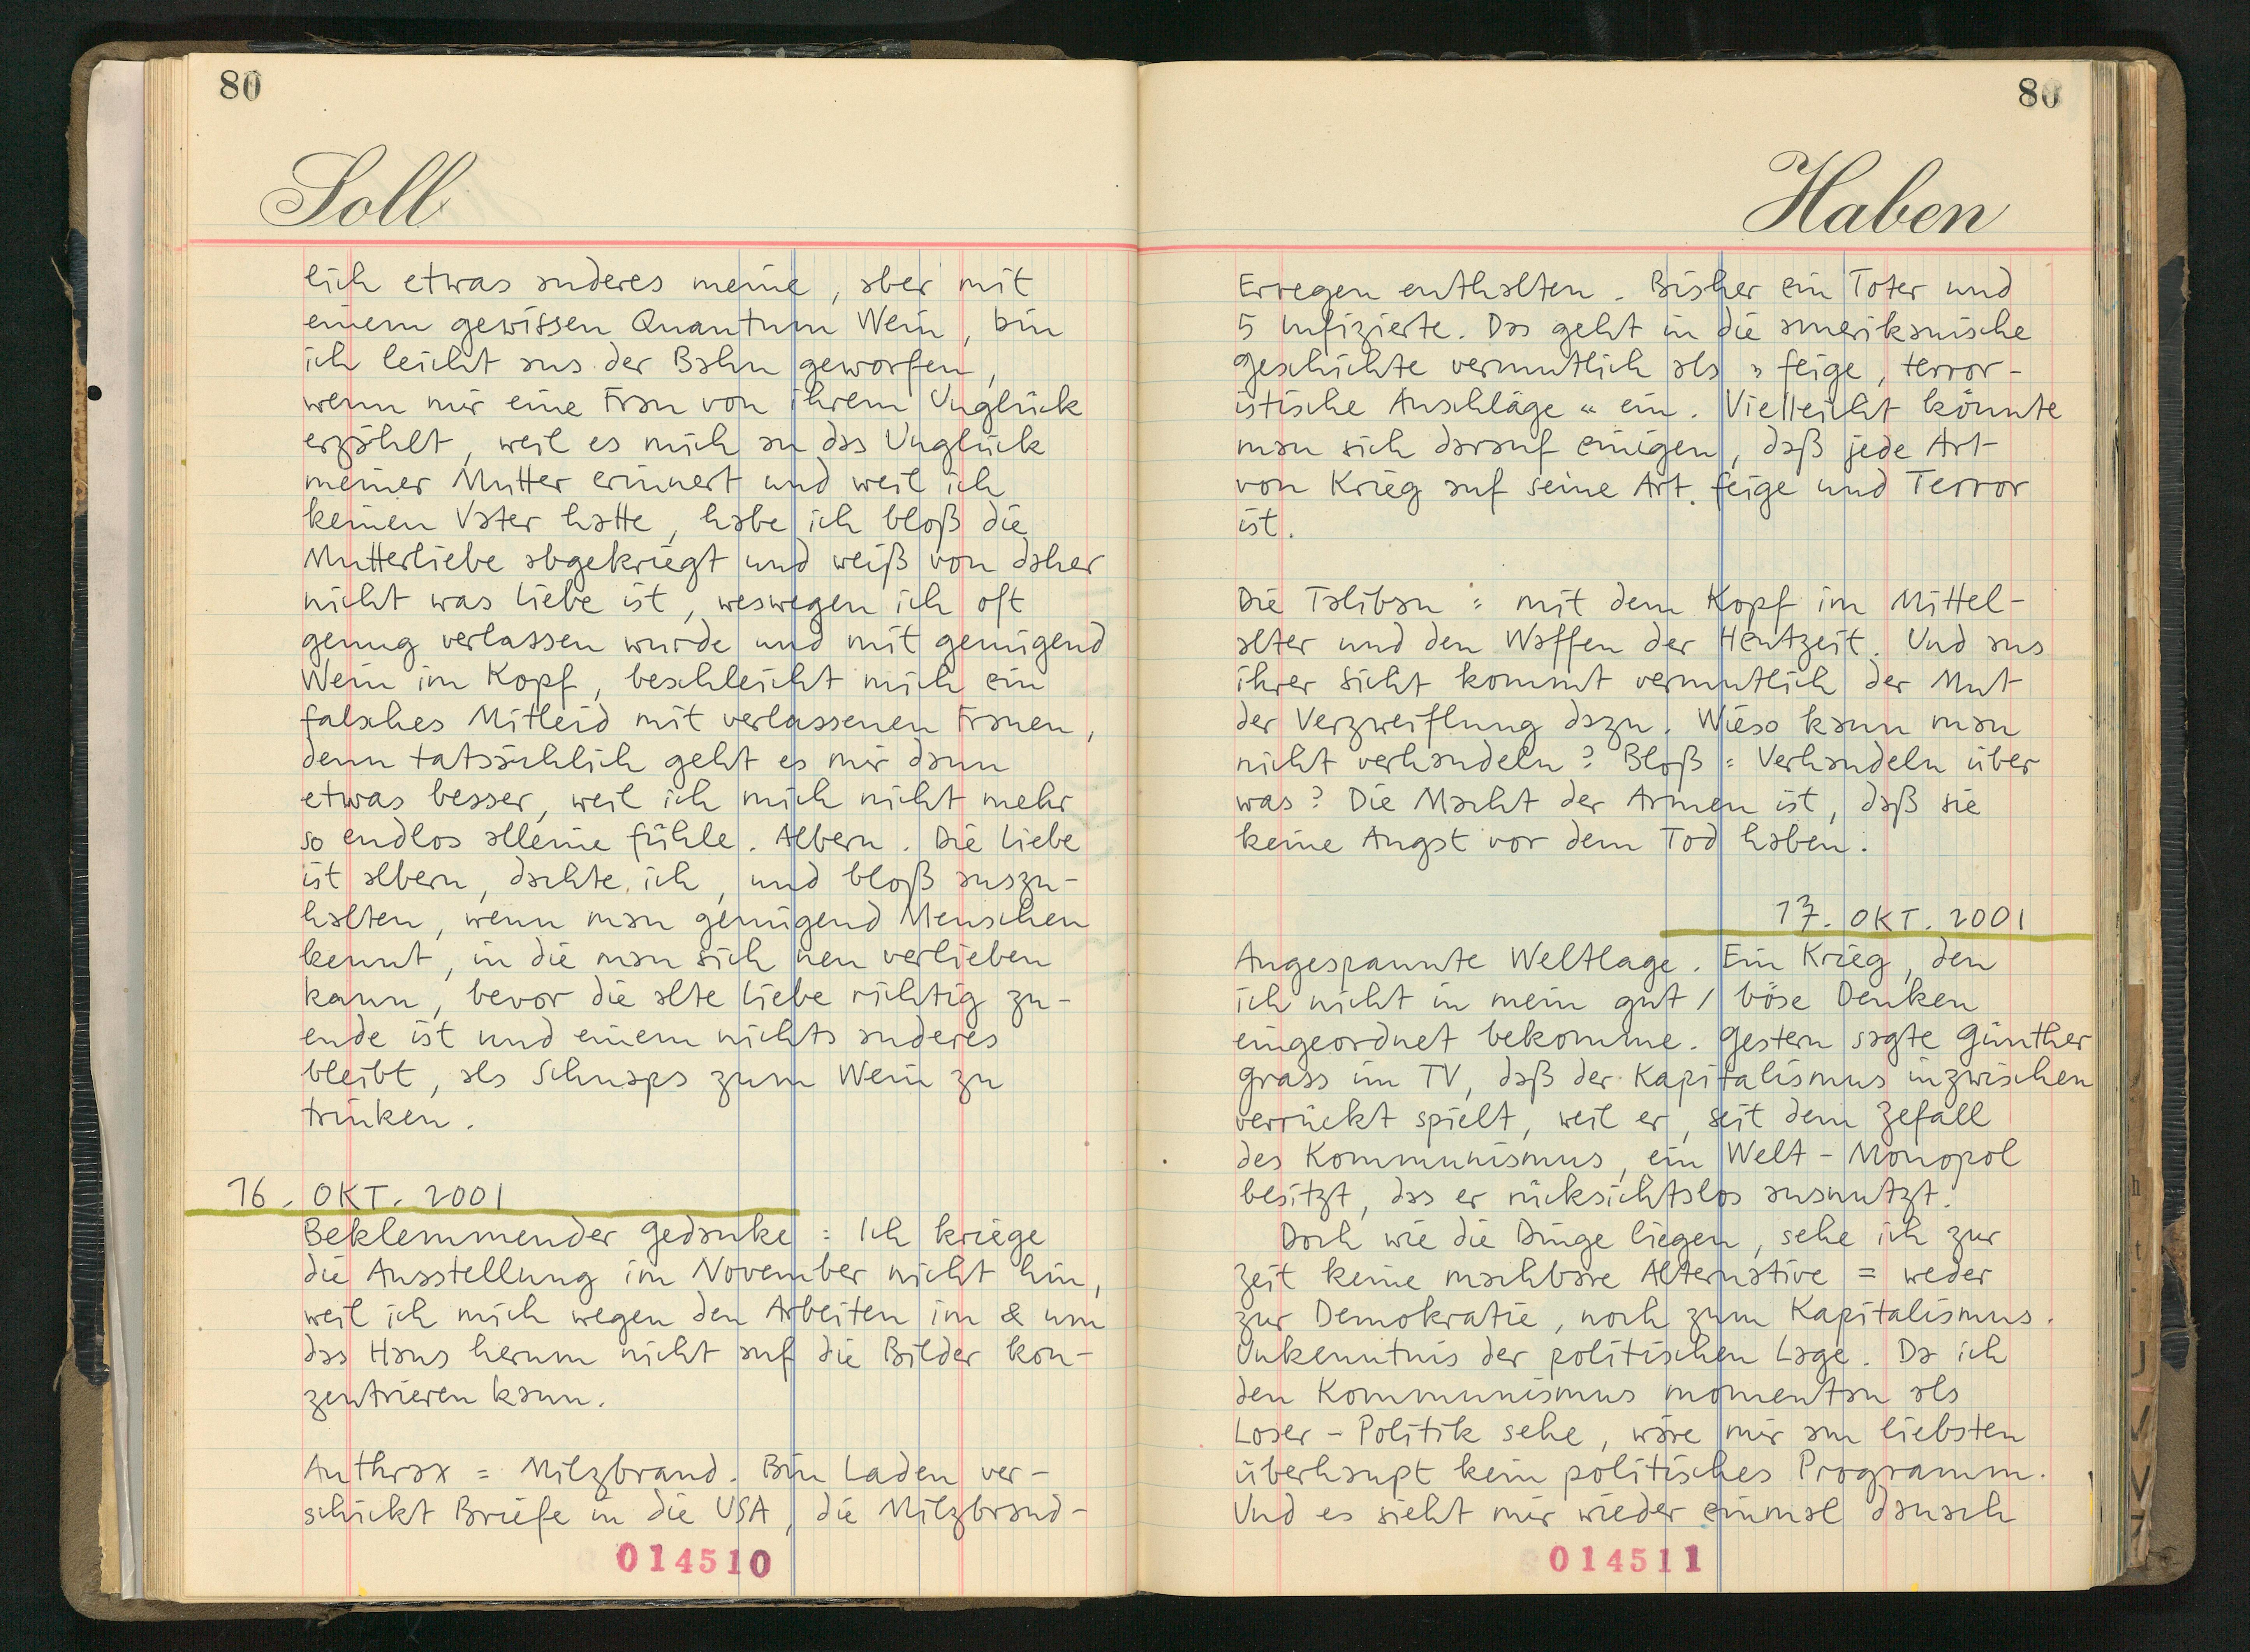 80
Soll
lich etwas anderes meine, aber mit
einem gewissen Quantum Wein, bin
ich leicht aus der Bahn geworfen,
wenn mir eine Frau von ihrem Unglück
erzählt, weil es mich an das Unglück
meiner Mutter erinnert und weil ich
keinen Vater hatte, habe ich bloß die
Mutterliebe abgekriegt und weiß von daher
nicht was Liebe ist, weswegen ich oft
genug verlassen wurde und mit genügend
Wein im Kopf, beschleicht mich ein
falsches Mitleid mit verlassenen Frauen,
denn tatsächlich geht es mir dann
etwas besser, weil ich mich nicht mehr
so endlos alleine fühle. Albern. Die Liebe
ist albern, dachte ich, und bloß auszu-
halten, wenn man genügend Menschen
kennt, in die man sich neu verlieben
kann, bevor die alte Liebe richtig zu-
ende ist und einem nichts anderes
bleibt, als Schnaps zum Wein zu
trinken.
16. OKT. 2001
Beklemmender Gedanke: Ich kriege
die Ausstellung im November nicht hin,
weil ich mich wegen den Arbeiten im & um
das Haus herum nicht auf die Bilder kon-
zentrieren kann.
Anthrax = Milzbrand. Bin Laden ver-
schickt Briefe in die USA, die Milzbrand-
014510
80
Haben
Erregen enthalten. Bisher ein Toter und
5 Infizierte. Das geht in die amerikanische
Geschichte vermutlich als "feige, terror-
istische Anschläge" ein. Vielleicht könnte
man sich darauf einigen, daß jede Art
von Krieg auf seine Art feige und Terror
ist.
Die Taliban: mit dem Kopf im Mittel-
alter und den Waffen der Heutzeit. Und aus
ihrer Sicht kommt vermutlich der Mut
der Verzweiflung dazu. Wieso kann man
nicht verhandeln? Bloß: Verhandeln über
was? Die Macht der Armen ist, daß sie
keine Angst vor dem Tod haben.
17. OKT. 2001
Angespannte Weltlage. Ein Krieg, den
ich nicht in mein gut/böse Denken
eingeordnet bekomme. Gestern sagte Günther
Grass im TV, daß der Kapitalismus inzwischen
verrückt spielt, weil er, seit dem Zefall
des Kommunismus, ein Welt-Monopol
besitzt, das er rücksichtslos ausnutzt.
Doch wie die Dinge liegen, sehe ich zur
Zeit keine machbare Alternative = weder
zur Demokratie, noch zum Kapitalismus.
Unkenntnis der politischen Lage. Da ich
den Kommunismus momentan als
Loser-Politik sehe, wäre mir am liebsten
überhaupt kein politisches Programm.
Und es sieht mir wieder einmal danach
014511